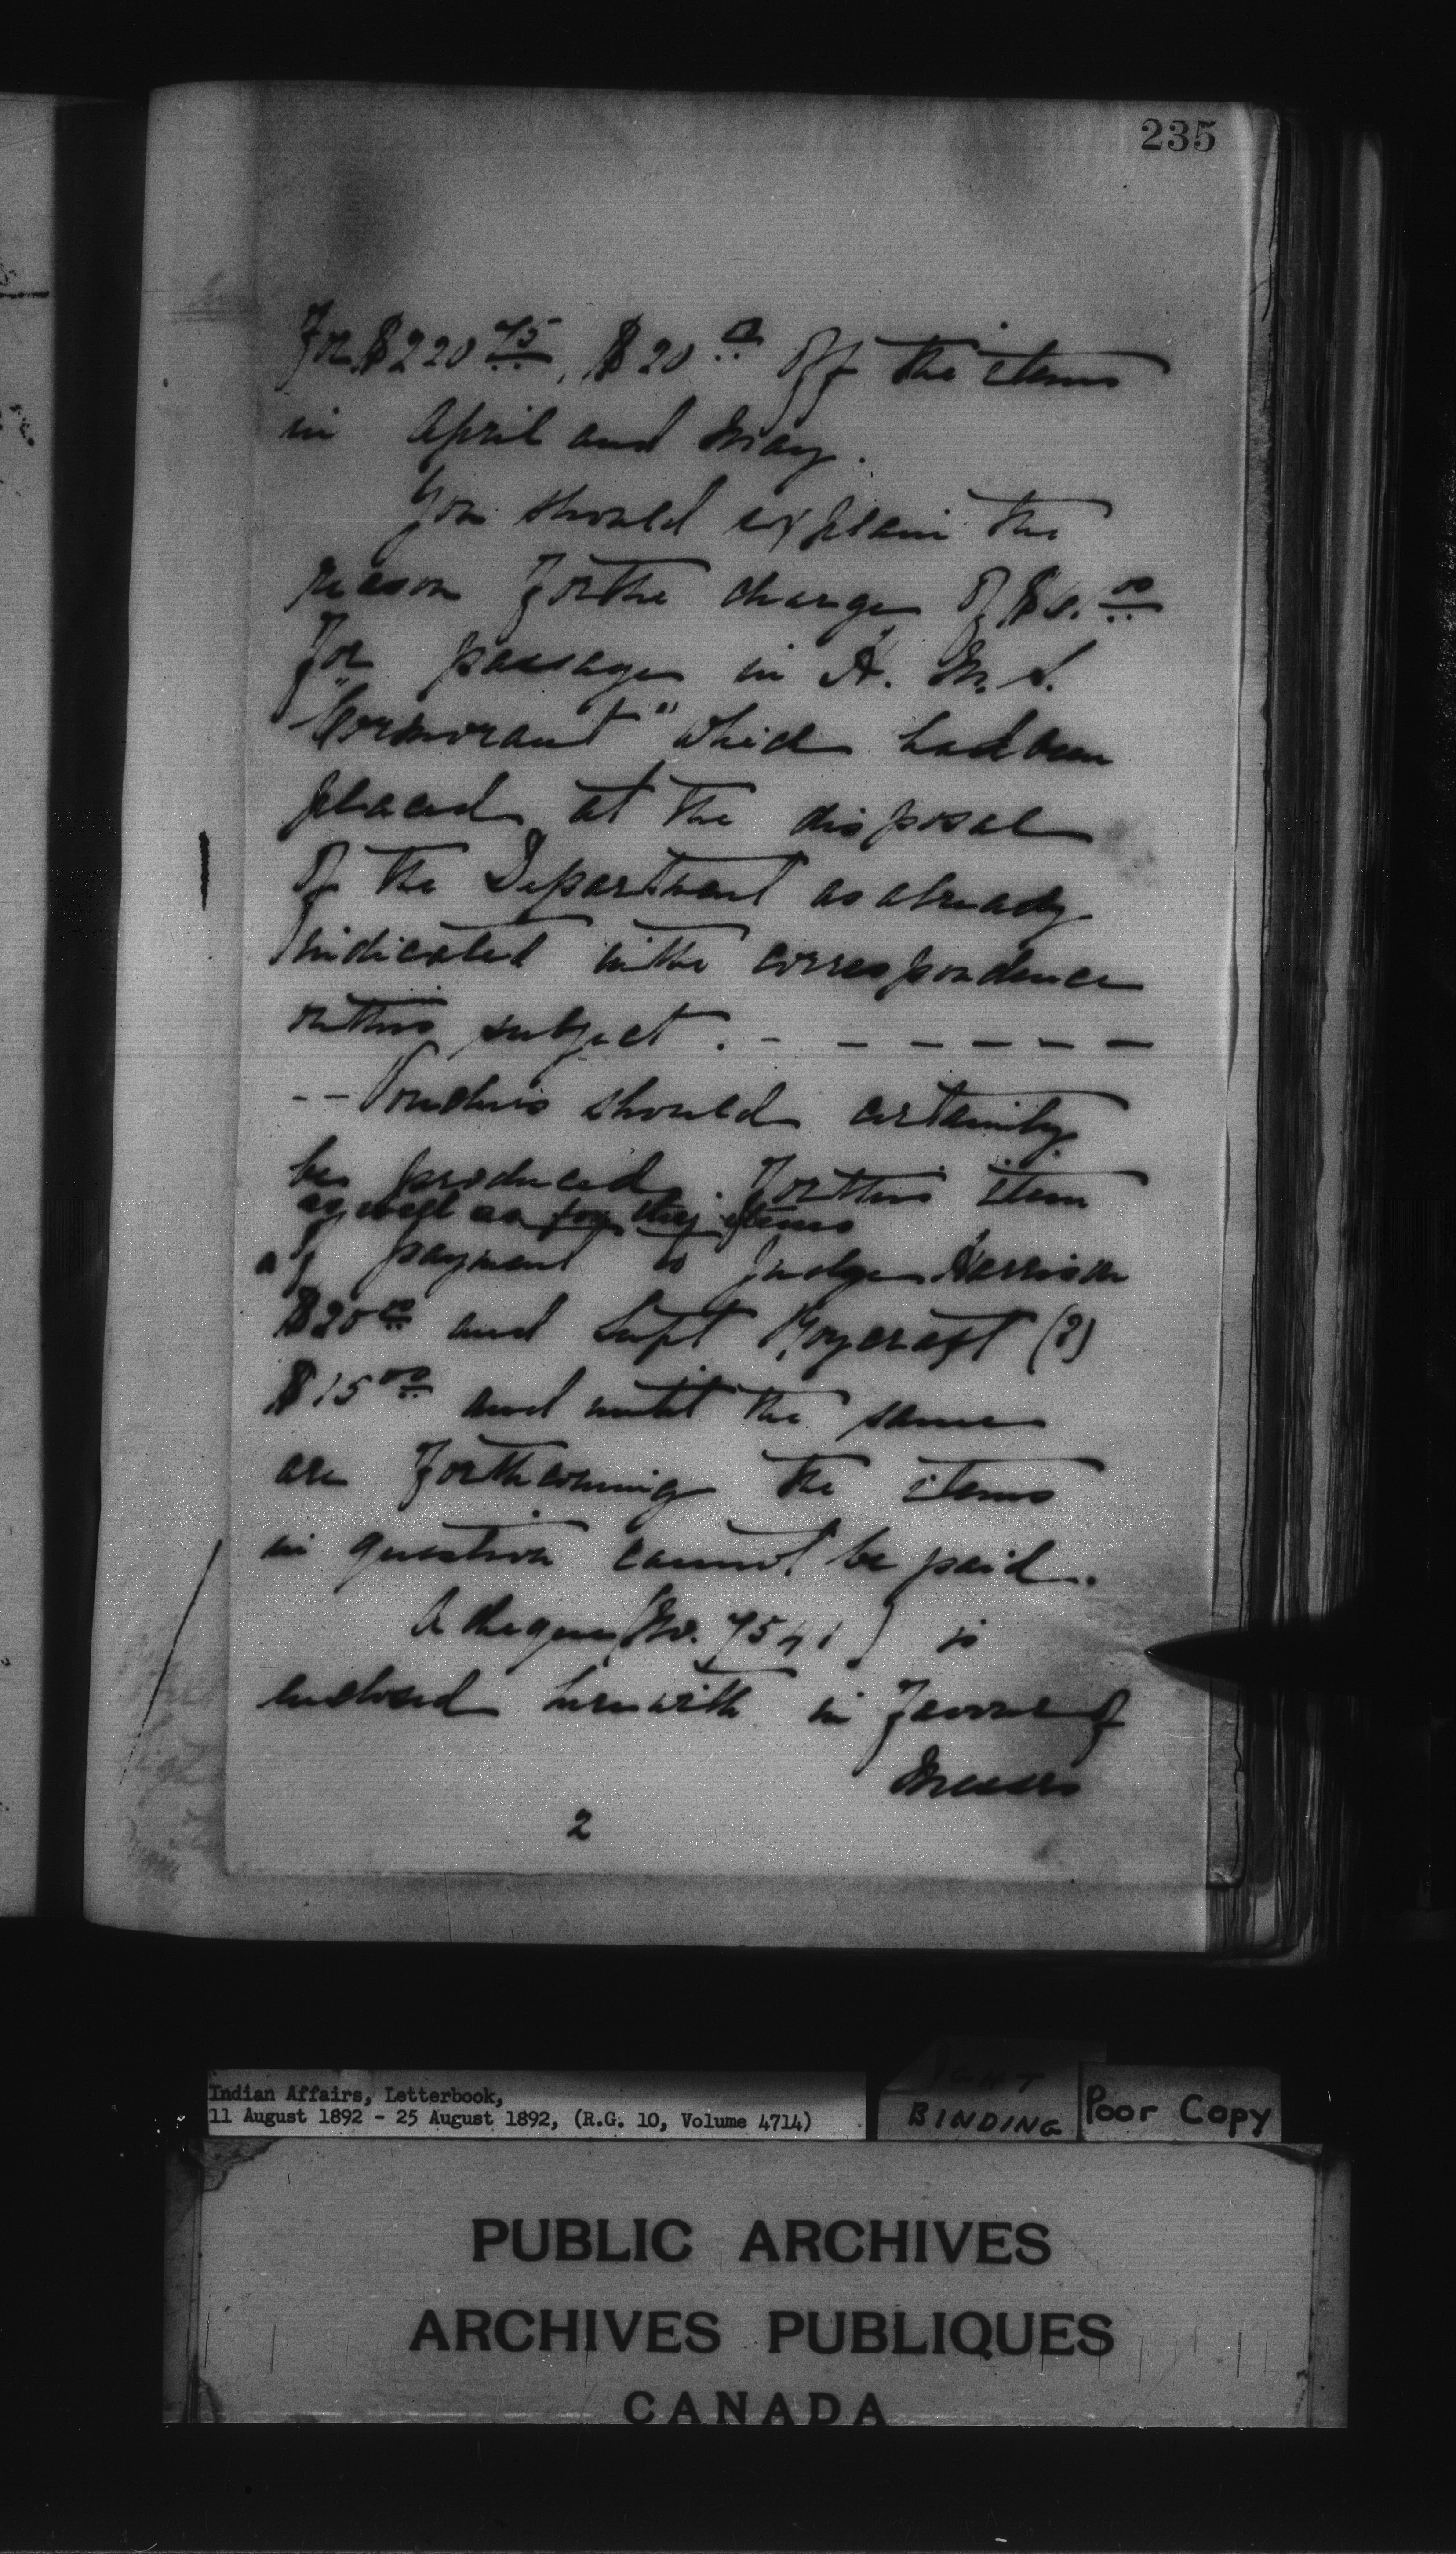 235
for $220 75, $20 00 off the items
in April and May.
You should explain the
reason for the charge of $8. 00
for passage in H. M. S.
"Cormorant" which had been
placed at the disposal
of the Department as already
indicated in the correspondence
on this subject. - - - - - - -
-- Vouchers should certainly
be produced for this item
as well as for the items
of payment to Judge Harrison
$20 00 and Supt Roycraft (?)
$15 00 and until the same
are forthcoming the items
in question cannot be paid.
A cheque (No. 7541) is
enclosed herewith in favour of
Messrs
2
Indian Affairs, Letterbook,
11 August 1892 - 25 August 1892, (R.G. 10, Volume 4714)
BINDING
Poor Copy
PUBLIC ARCHIVES
ARCHIVES PUBLIQUES
CANADA